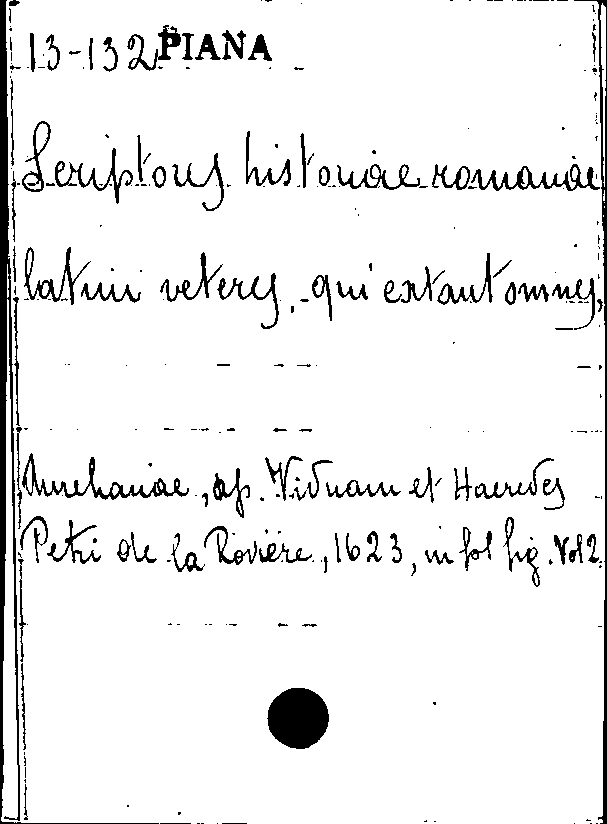 13-132 PIANA
Scriptores historiae romanae
latini veteres, qui extant omnes,
Aureliauae, ap. Viduam et Haeredes
Petri de la Rovière, 1623, in fol fig. Vol 2